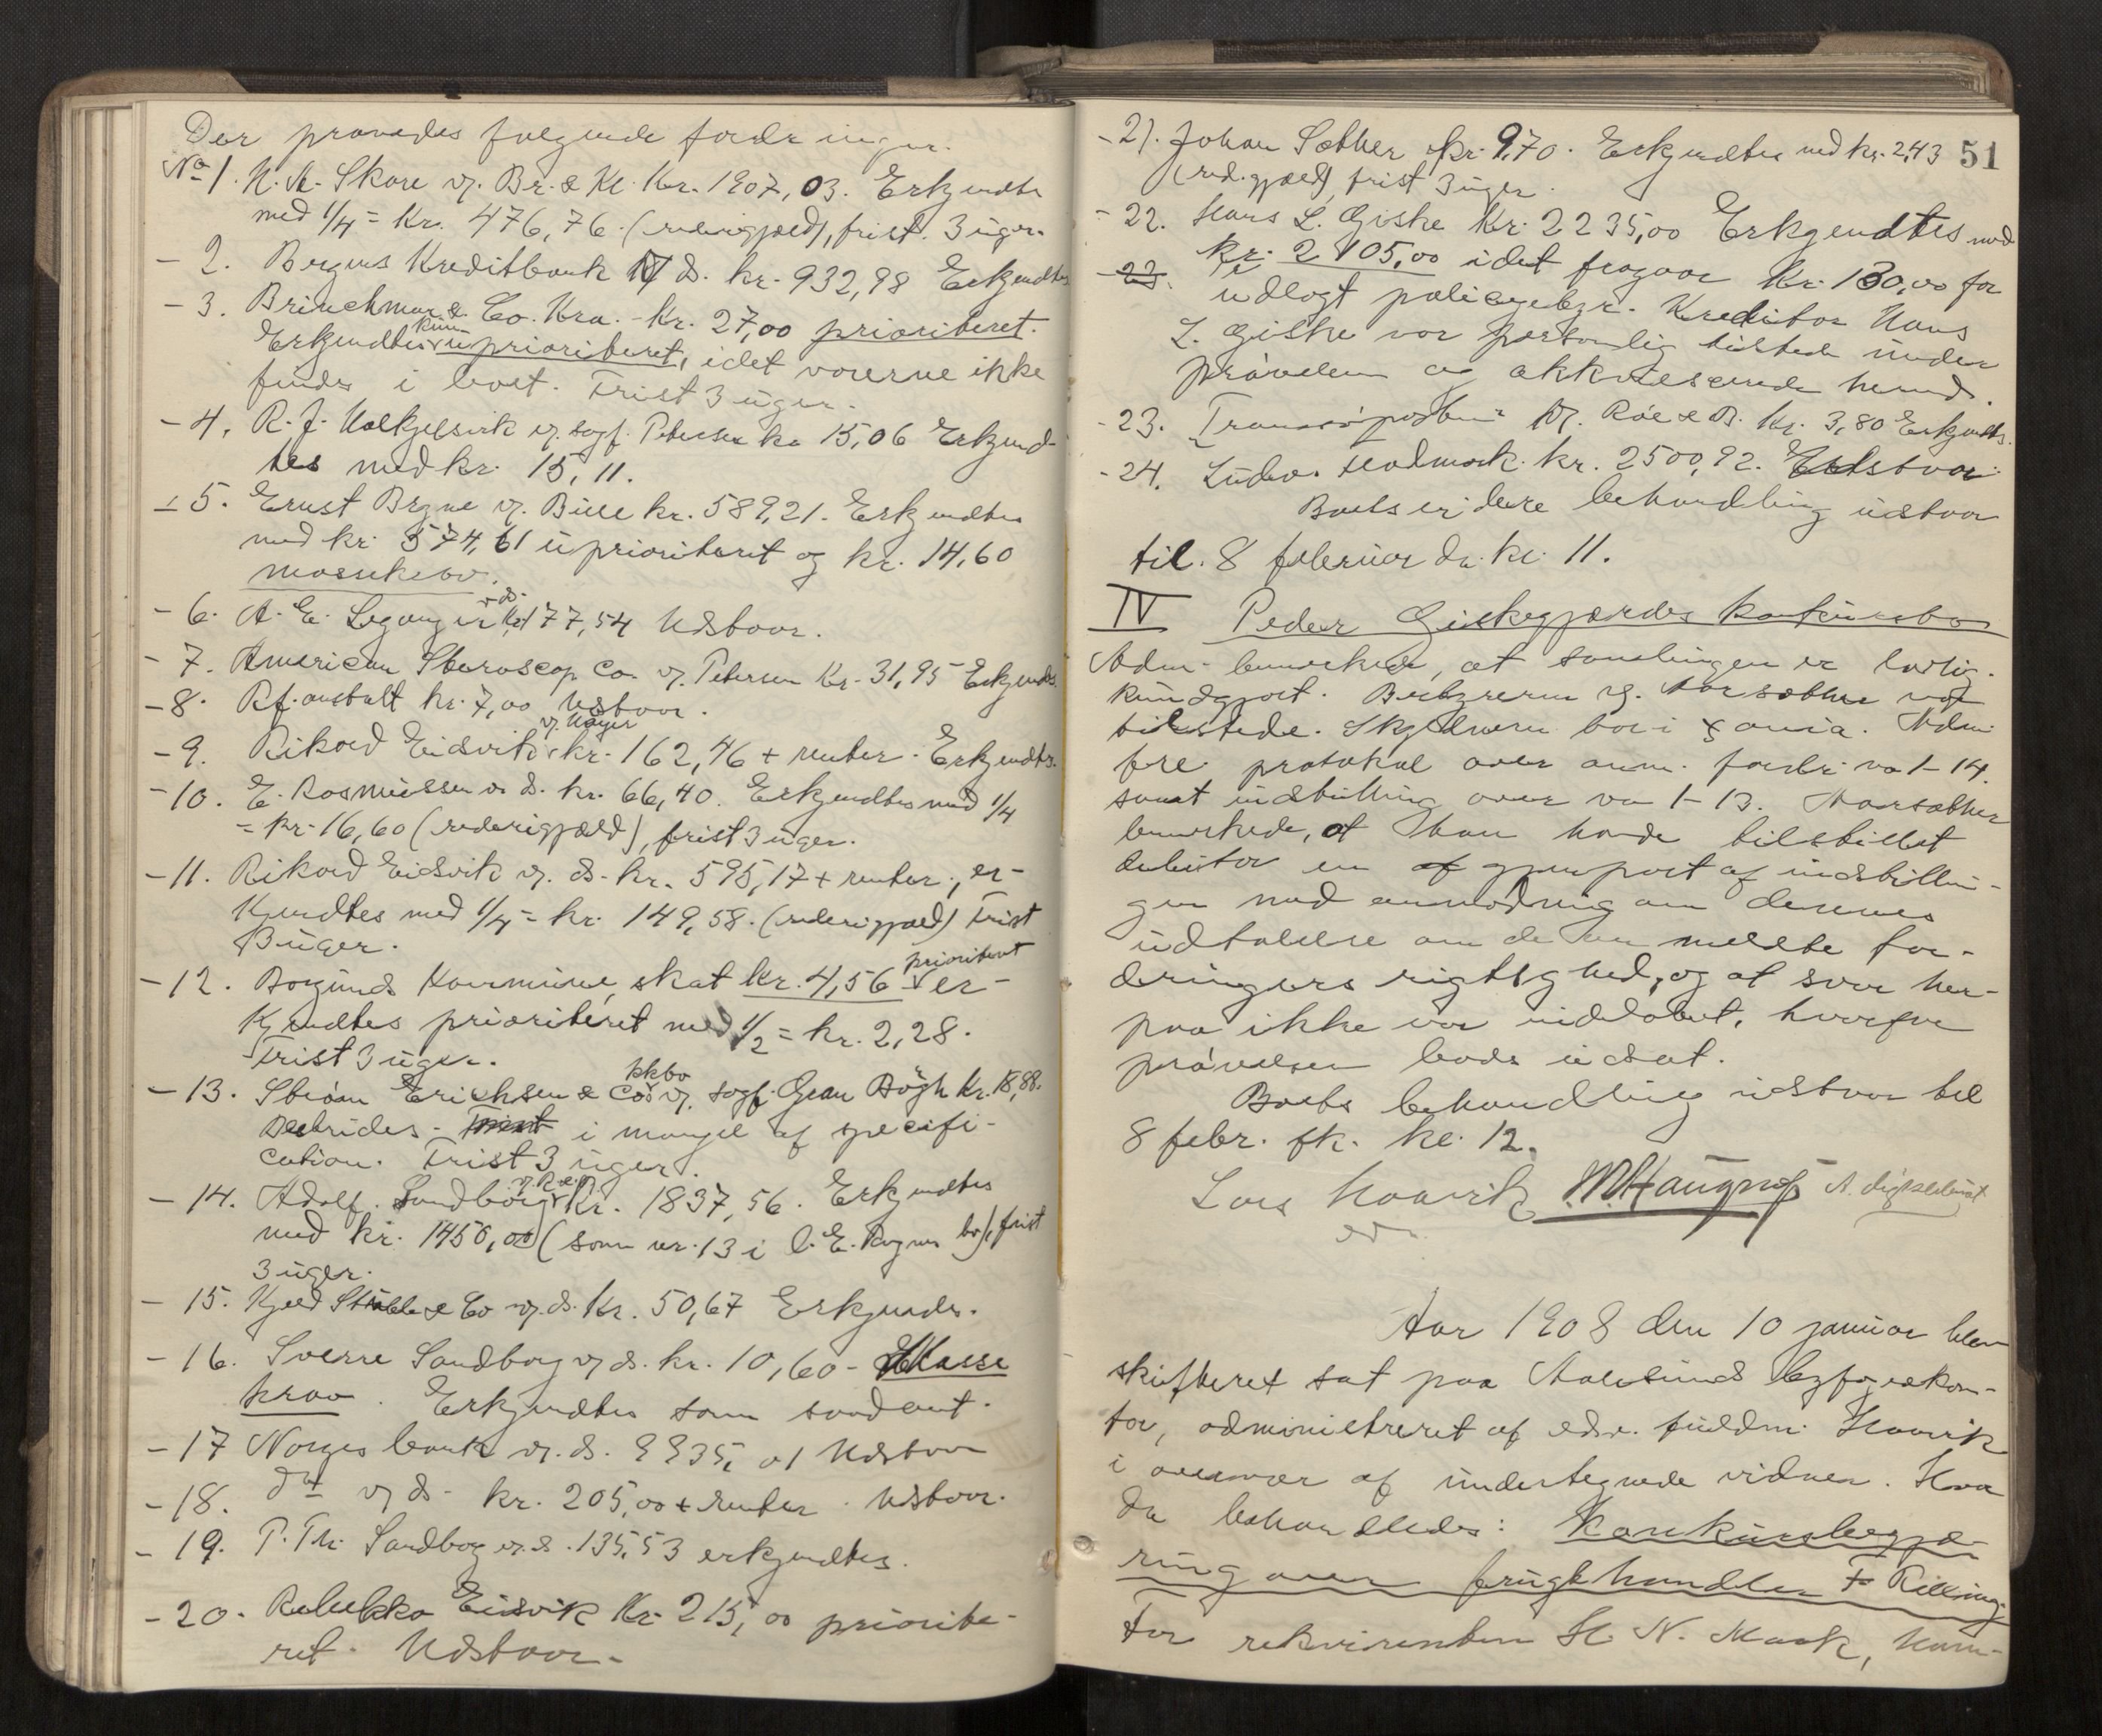 Der prøvedes følgende fordringer.
No 1. N. A. Skare vj. Br. & Kl. Kr. 1907,03. Erkjendtes
med 1/4 = Kr. 476,76. (rederigjæld), frist 3 uger.
- 2. Bergens Kreditbank vj ds. kr. 932,98 Erkjendtes
- 3. Brinchmann & Co. Kra. - Kr. 27,00 prioriteret.
Erkjendtes kun uprioriteret, idet varerne ikke
findes i boet. Frist 3 uger.
- 4. R. J. vj. sagf. Petersen kr 15,06 Erkjend-
tes med kr. 15,11.
- 5. Ernst Brgne vj. Bull kr. 589,21. Erkjendtes
med kr. 574,61 uprioriteret og kr. 14,60
massekrav.
- 6. A. E. Leganger v. ds. Kr. 177,54 Udstaar.
- 7. American Steroscop. Co. vj. Petersen Kr. 31,95 Erkjendtes.
- 8. Rf. anstalt kr. 7,00 Udstaar.
- 9. Rikard Eidsvik vj. Høyer kr. 162,46 + renter. Erkjendtes.
- 10. E. Rasmussen v. ds. kr. 66,40. Erkjendtes med 1/4
= kr. 16,60 (rederigjæld), frist 3 uger.
- 11. Rikard Eidsvik vj. ds. kr. 595,17 + renter, er-
kjendtes med 1/4 = kr. 149,58. (rederigjæld) Frist
3 uger.
- 12. Borgunds Kommune, skat kr. 4,56 prioriteret er-
kjendtes prioriteret med 1/2 = kr. 2,28.
Frist 3 uger.
- 13. Strøm Erichsen & Co's kkbo vj. sagf. Gran Bøgh Kr. 18,88.
Bestrides - i mangel af specifi-
cation. Frist 3 uger.
- 14. Adolf Sandborg vj. R. & B. Kr. 1837,56. Erkjendtes
med kr. 1450,00 (som nr. 13 i bo), frist
3 uger.
- 15. Kjeld Stub & Co vj. ds. Kr. 50,67 Erkjendes.
- 16. Sverre Sandborg vj ds. kr. 10,60 - Masse
krav. Erkjendtes som saadant.
- 17 Norges bank vj. ds. 9935,01 Udstaar
- 18. do vj ds - kr. 205,00 + renter. Udstaar.
- 19. P. Th. Sandborg vj. ds. 135,53 erkjendtes.
- 20. Rebekka Eidsvik Kr. 215,00 priorite-
ret. Udstaar.
51
- 21. Johan Sæther kr. 9,70. Erkjendtes med kr. 2,43
(red.gjæld), frist 3 uger.
- 22. Hans L. Giske Kr. 2235,00 Erkjendtes med
kr. 2105,00 idet fragaar Kr. 130,00 for
- 23. udlagt policegebyr. Kreditor Hans
L. Giske var personlig tilstede under
prøvelsen og akkviescerede herved.
- 23. vj. Røe & B. Kr. 3,80 Erkjendtes.
- 24. Ludv. Holmark kr. 2500,92. Udstaar.
Boets videre behandling udstaar
til 8 februar ds. kl. 11.
IV Peder Giskegjærdes konkursbo
Adm. bemærkede, at samlingen er lovlig
kundgjort. Bestyreren vj. Aarsæther var
tilstede. Skyldneren bor i Xania. Adm.
fre. protokol over anm. fordr. no 1-14
samt indstilling over no 1-13. Aarsæther
bemærkede, at han havde tilstillet
debitor en af gjenpart af indstillin-
gen med anmodning om dennes
udtalelse om de anmeldte for-
dringers rigtighed, og at svar her-
paa ikke var indløbet, hvorfor
prøvelsen bades udsat.
Boets behandling udstaar til
8 febr. fk. kl. 12.
Lars Haavik
Aar 1908 den 10 januar blev
skifteret sat paa Aalesunds byfogedkon-
tor, administreret af edsv. fuldm. Haavik
i overvær af undertegnede vidner. Hvor
da behandledes: Konkursbegjæ-
ring over frugthandler F Rilling.
For rekvirenten H. N. Mark, Ham-